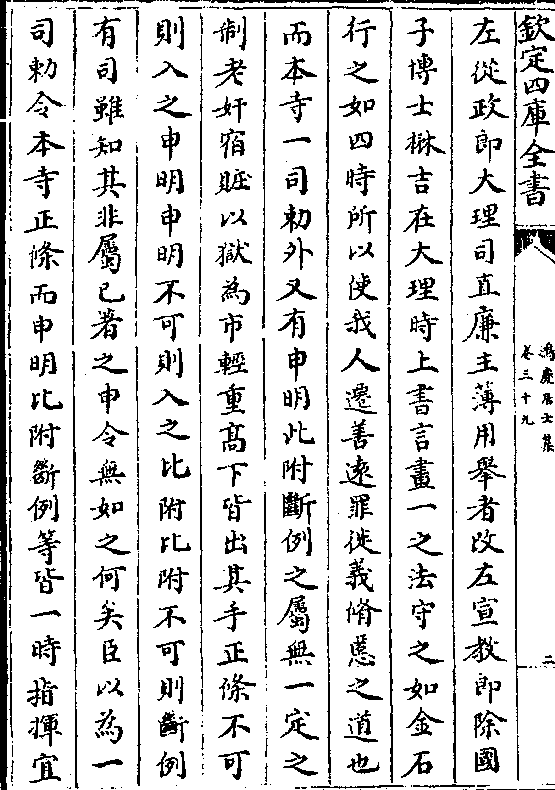 欽定四庫全書
鴻慶居士集
卷三十九
二
左從政郎大理司直廉主薄用舉者改左宣教郎除國
子博士楙吉在大理時上書言畫一之法守之如金石
行之如四時所以使我人遷善逺罪徙義脩慝之道也
而本寺一司勅外又有申明比附斷例之屬無一定之
制老奸宿贓以獄為市輕重髙下皆出其手正條不可
則入之申明申明不可則入之比附比附不可則斷例
有司雖知其非屬已著之申令無如之何矣臣以為一
司勅令本寺正條而申明比附斷例等皆一時指揮宜